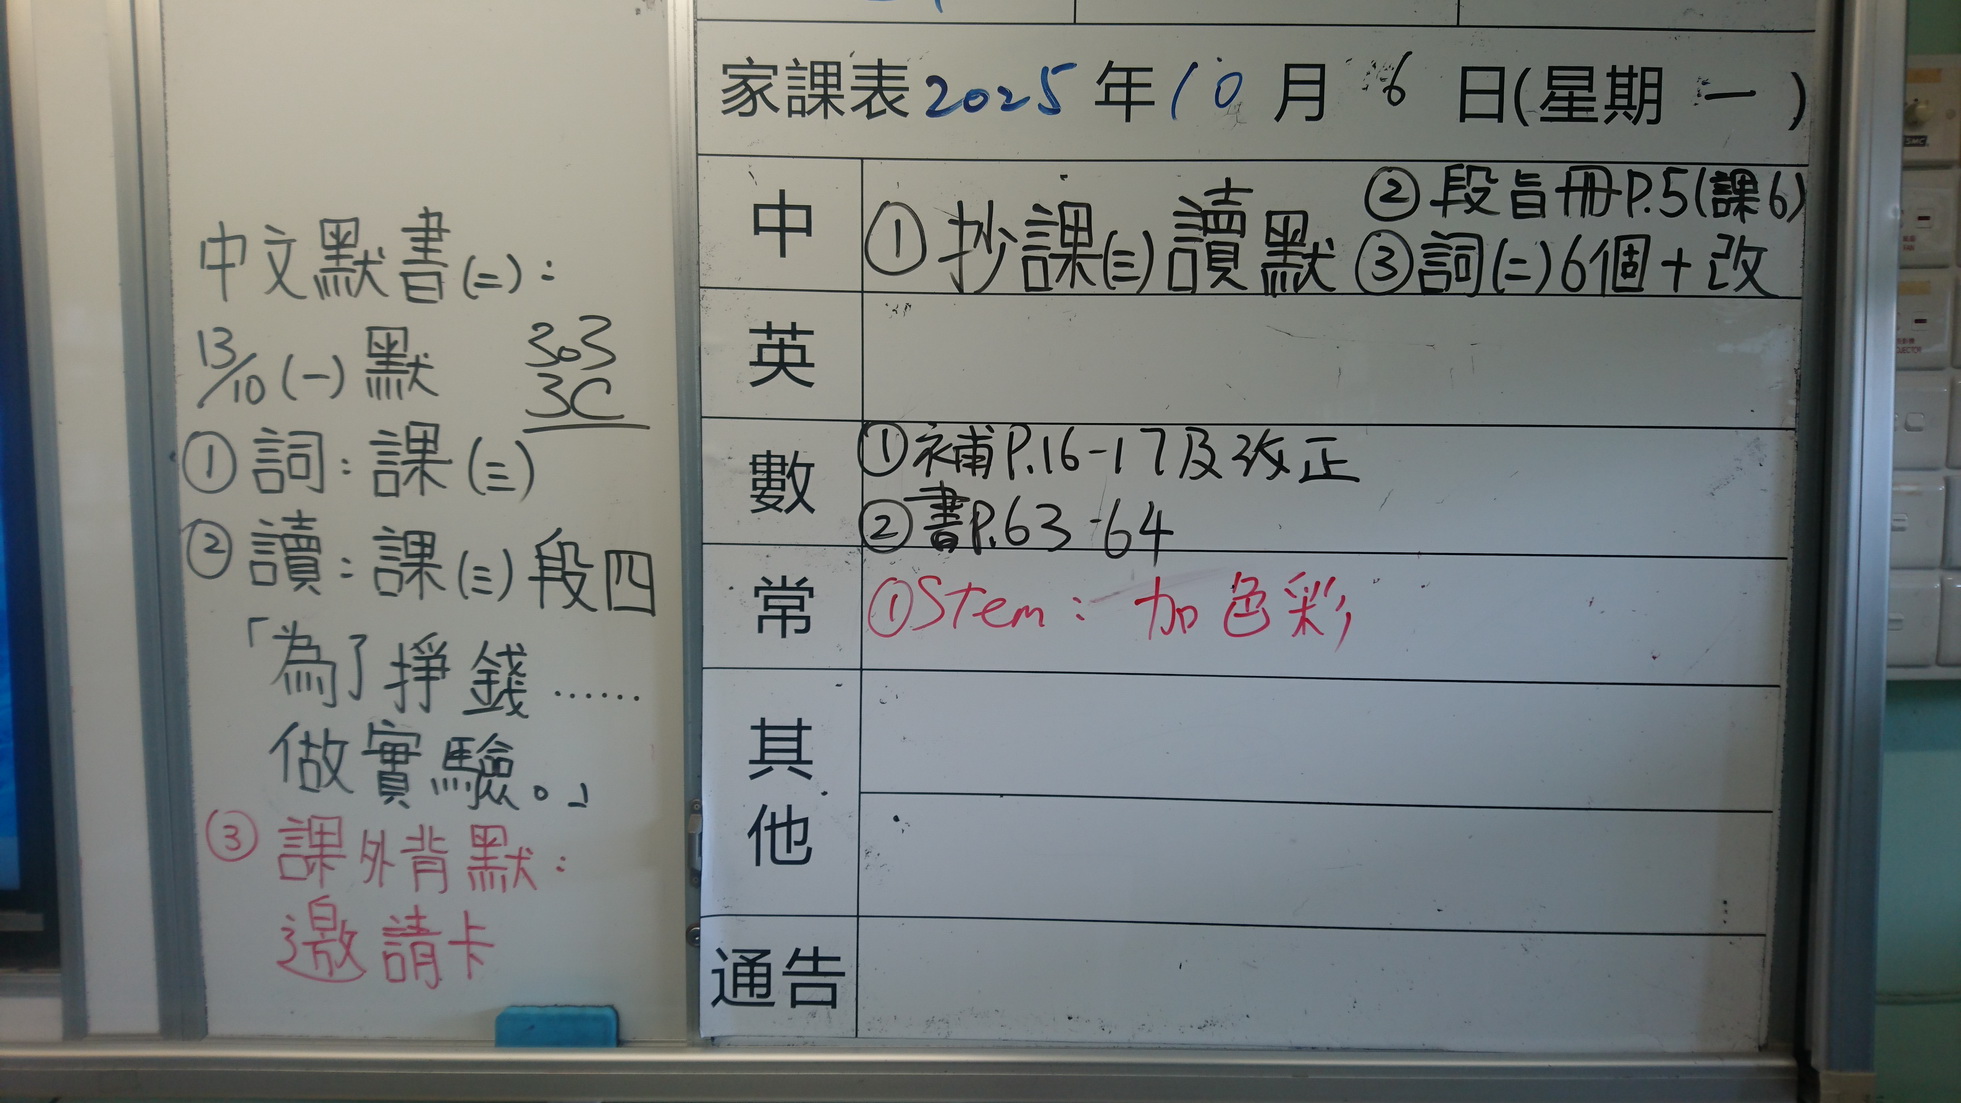 中文默書(二):
13/10(一)默
303
3C
①詞:課(三)
②讀:課(三)段四
「為了掙錢……
做實驗。」
③課外背默:
邀請卡
家課表2025年10月6日(星期一)
中
①抄課(三)讀默
②段旨冊P.5(課6)
③詞(二)6個+改
英
數
①補P.16-17及改正
②書P.63-64
常
①Stem:加色彩
其他
通告